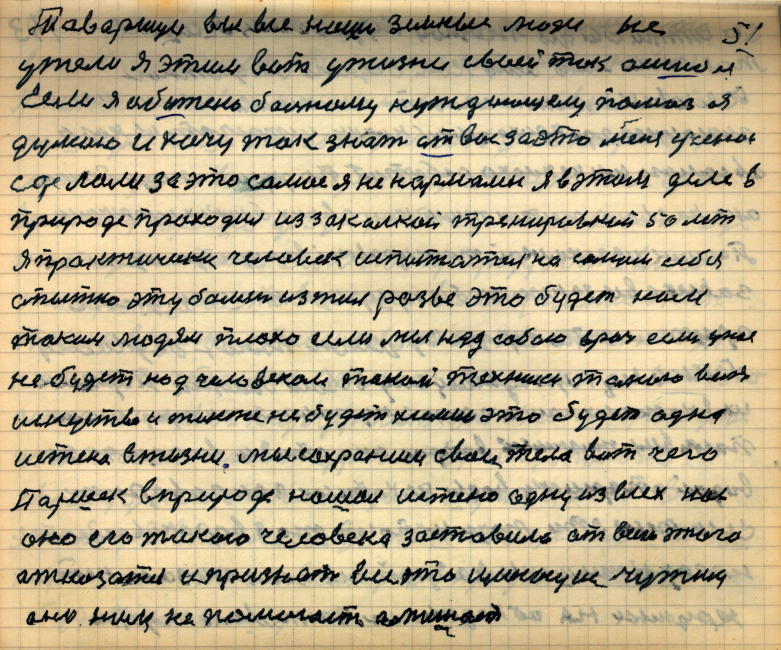 Таварищи вы все наши земные люди не 51
ужели я этим вот ужизни своей так ошибся
Если я обижено больному нуждающему помог я
думаю и хочу так знат от вас заэто меня ученые
сделали за это самое я не нармальн я вэтом деле в
природе проходил из закалкой тренировкой 50 лет
я практически человек испытател на самим себя
опытно эту болезн изжил разве это будет нам
таким людям плохо если мы над собою врач если уже
не будет над человеком такой техники такого
искуства и также не будет химии это будет одна
истена вжизни мы сохраним свои тела вот чего
Паршек вприроде нашол истено одну из всех нас
оно его такого человека заставила от всего этого
отказатся и признат все это чужим
оно ним не помогаеть